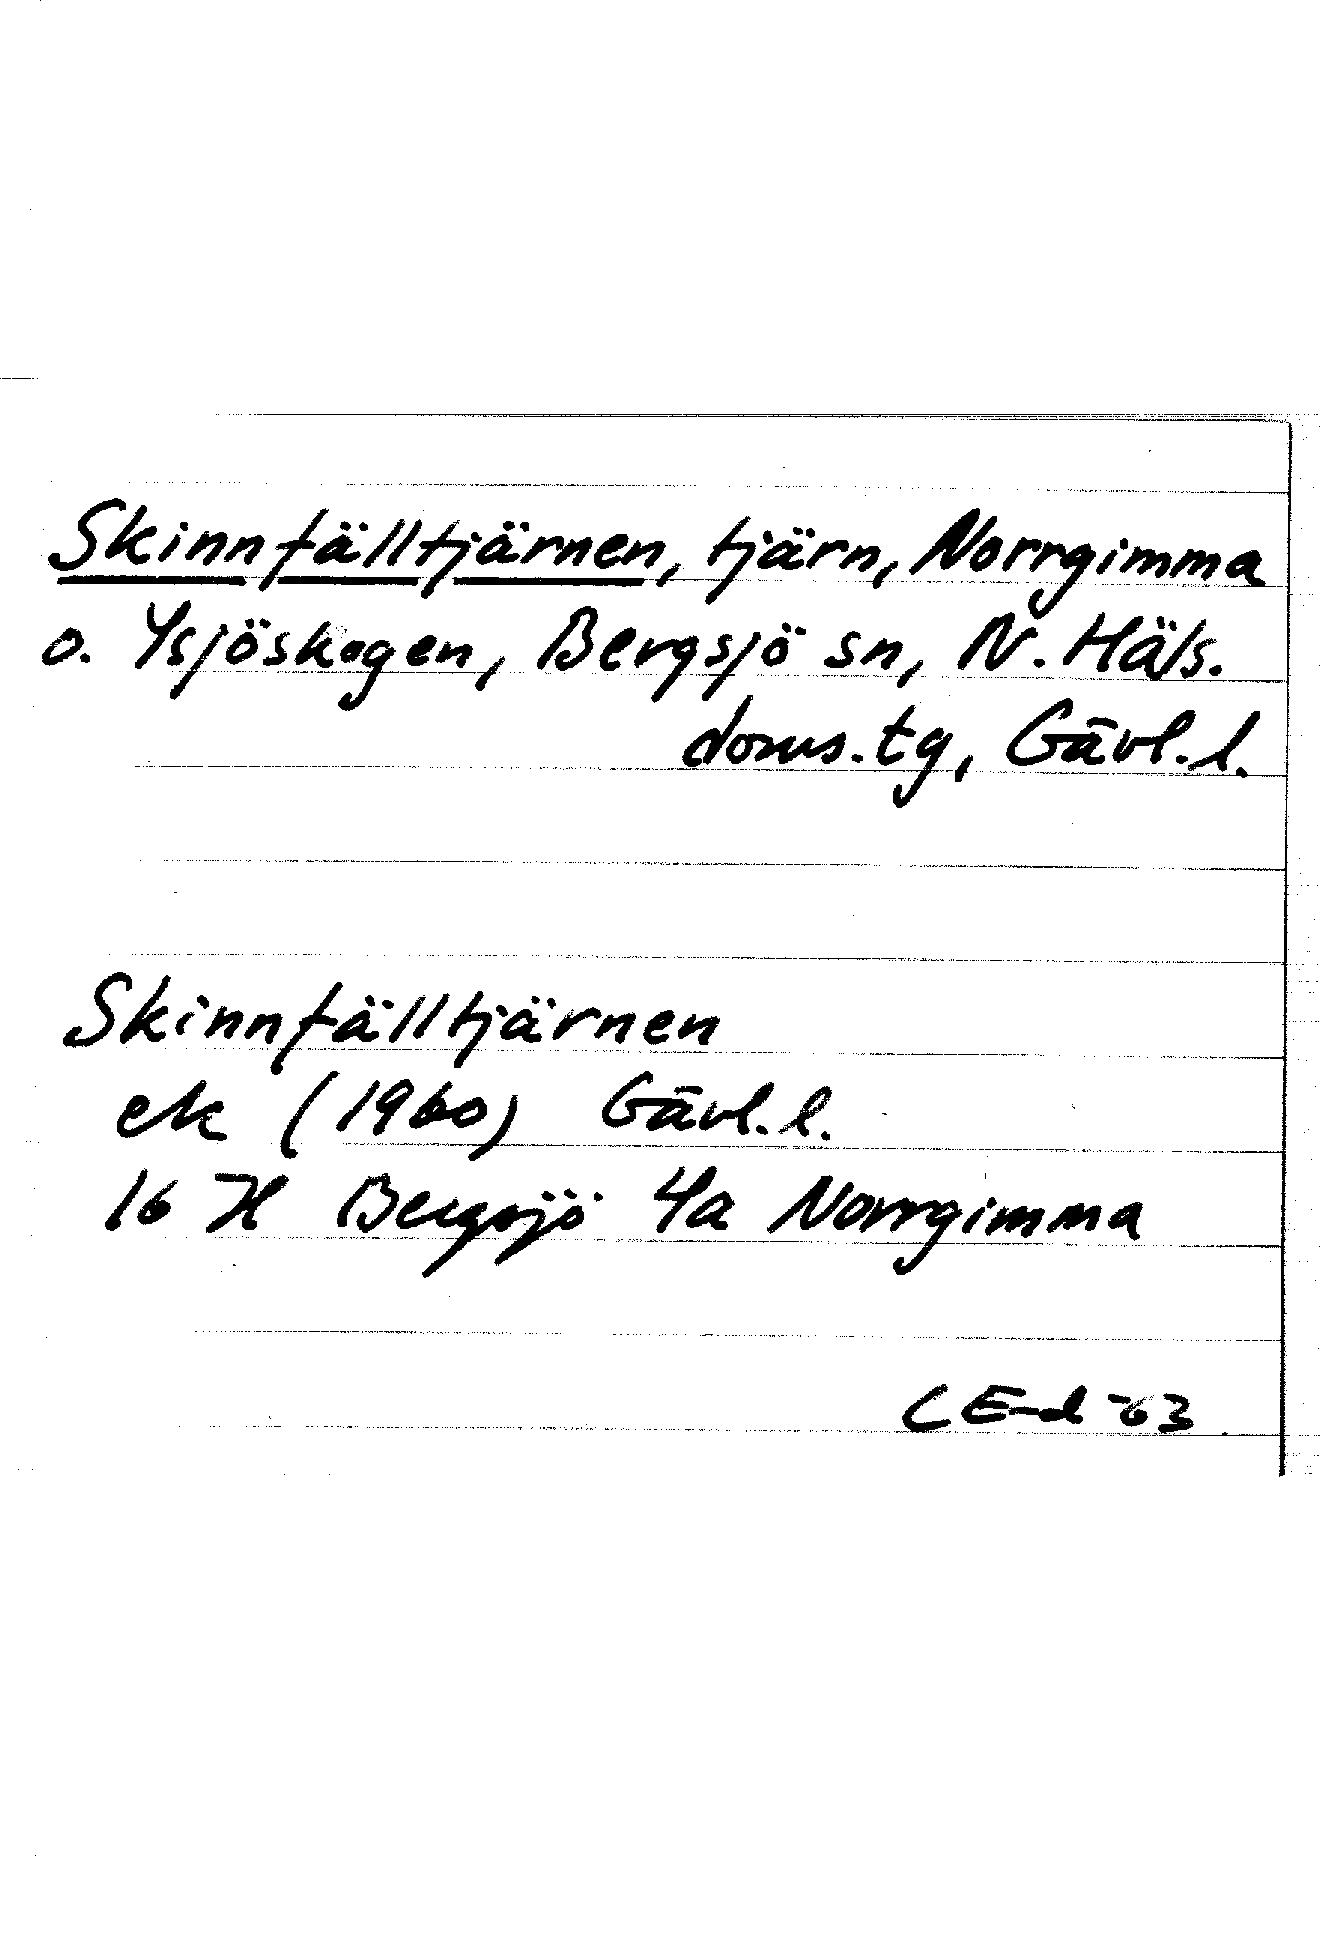 Skinnfälltjärnen, tjärn, Norrgimma
o. Ysjöskogen, Bergsjö sn, N. Häls.
doms. tg, Gävl. l.
Skinnfälltjärnen
ek (1960) Gävl. l.
16 H Bergsjö 4a Norrgimma
C E-d -63